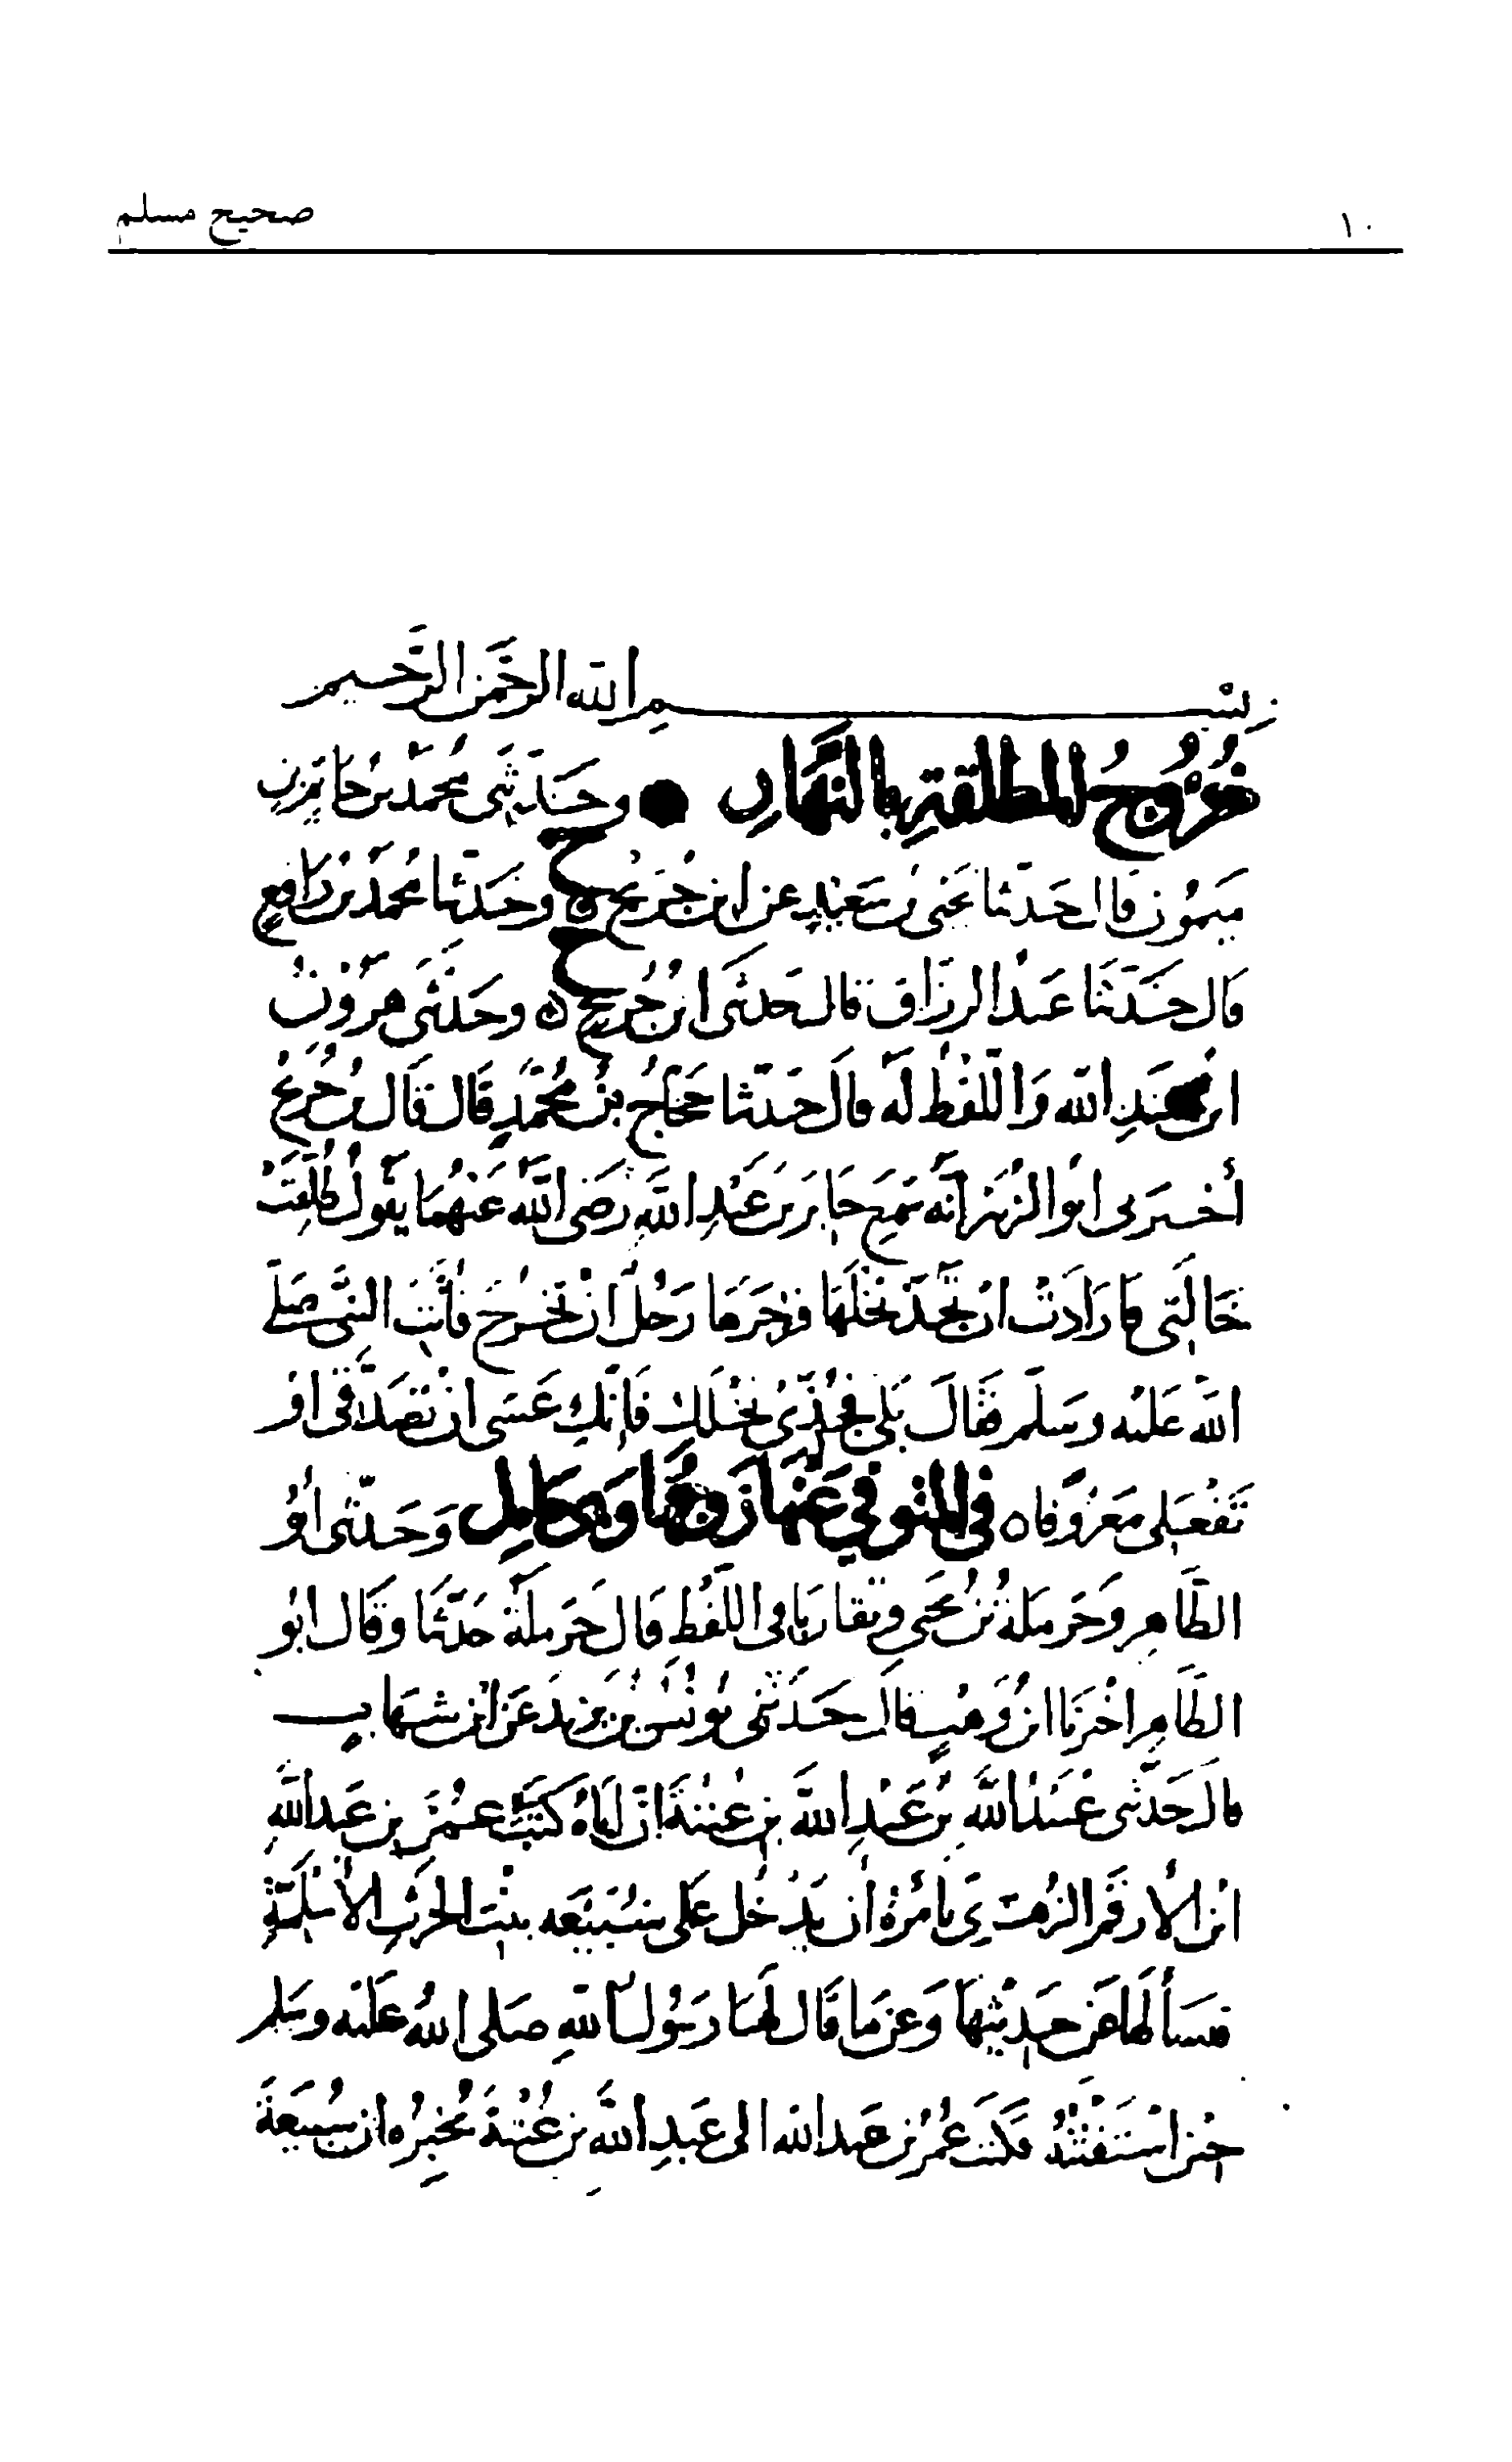 صحيح مسلم
١٠
بسم الله الرحمن الرحيم
خُرُوجُ المطلقةِ بالنهارِ وحَدَّثني محمد بن حاتم بن
ميمون قال حدثنا يحيى بن سَعيدٍ عن ابن جُرَيجٍ ح وحَدثنا محمد بن رافع
قال حَدَّثنا عَبدُ الرزاق قال حَدثني ابن جُريج ح وحَدثني هرُونُ
ابن عَبدِ الله وَاللّفظُ لَهُ قالَ حَدثنا حَجّاجُ بنُ مُحمّدٍ قال قال ابن جُريج
أخبرني ابو الزُبَير انّه سَمِعَ جَابرَ بن عَبْدِ اللَّهِ رَضَي اللَّهُ عَنهُمَا يَقولُ طُلِّقَتْ
خَالَتِي فارَادَتْ ان تَجُدَّ نَخْلَهَا فزجَرَهَا رَجُلٌ ان تَخرُجَ فأتتِ النبيَّ صَلى
الله عَليْه وسَلّم فقَالَ بَلى فجُدّي نَخْلَكِ فَإنّكِ عَسَى ان تصَدّقي او
تَفْعَلي مَعْرُوفًا ه في المتوفي عَنهَا زوجُهَا وهي حَامِل وَحَدّثني أبو
الطّاهِر وَحَرمَلة بْنُ يحيَى وتقارَبا في اللّفْظ قال حَرملَة حَدّثَنَا وقال ابُو
الطّاهِر اخْبَرنا ابنُ وَهْبٍ قال حَدّثَني يُونسُ بْنُ يزيد عَن ابن شهَابٍ
قالَ حَدّثني عُبَيْدُ اللَّهِ بْن عَبْدِ اللَّه بن عُتبَةَ انّ أبَاهُ كَتَبَ الى عُمَر بنِ عَبد اللَّهِ
ابن الأرقم الزُهري يَأمُرُهُ أن يَدْخُل عَلى سُبَيْعَه بنْتِ الحرث الأسْلميّةِ
فيَسَألها عن حَدِيثِهَا وَعن مَا قَال لهَا رَسُولُ اللهِ صَلى اللهُ عَليْه وسَلم
حِيْن اسْتَفْتَتْهُ فكَتَبَ عُمَرُ بن عَبد الله الى عَبدِ اللَّه بن عُتْبةَ يُخبِرُه ان سُبيْعَةَ